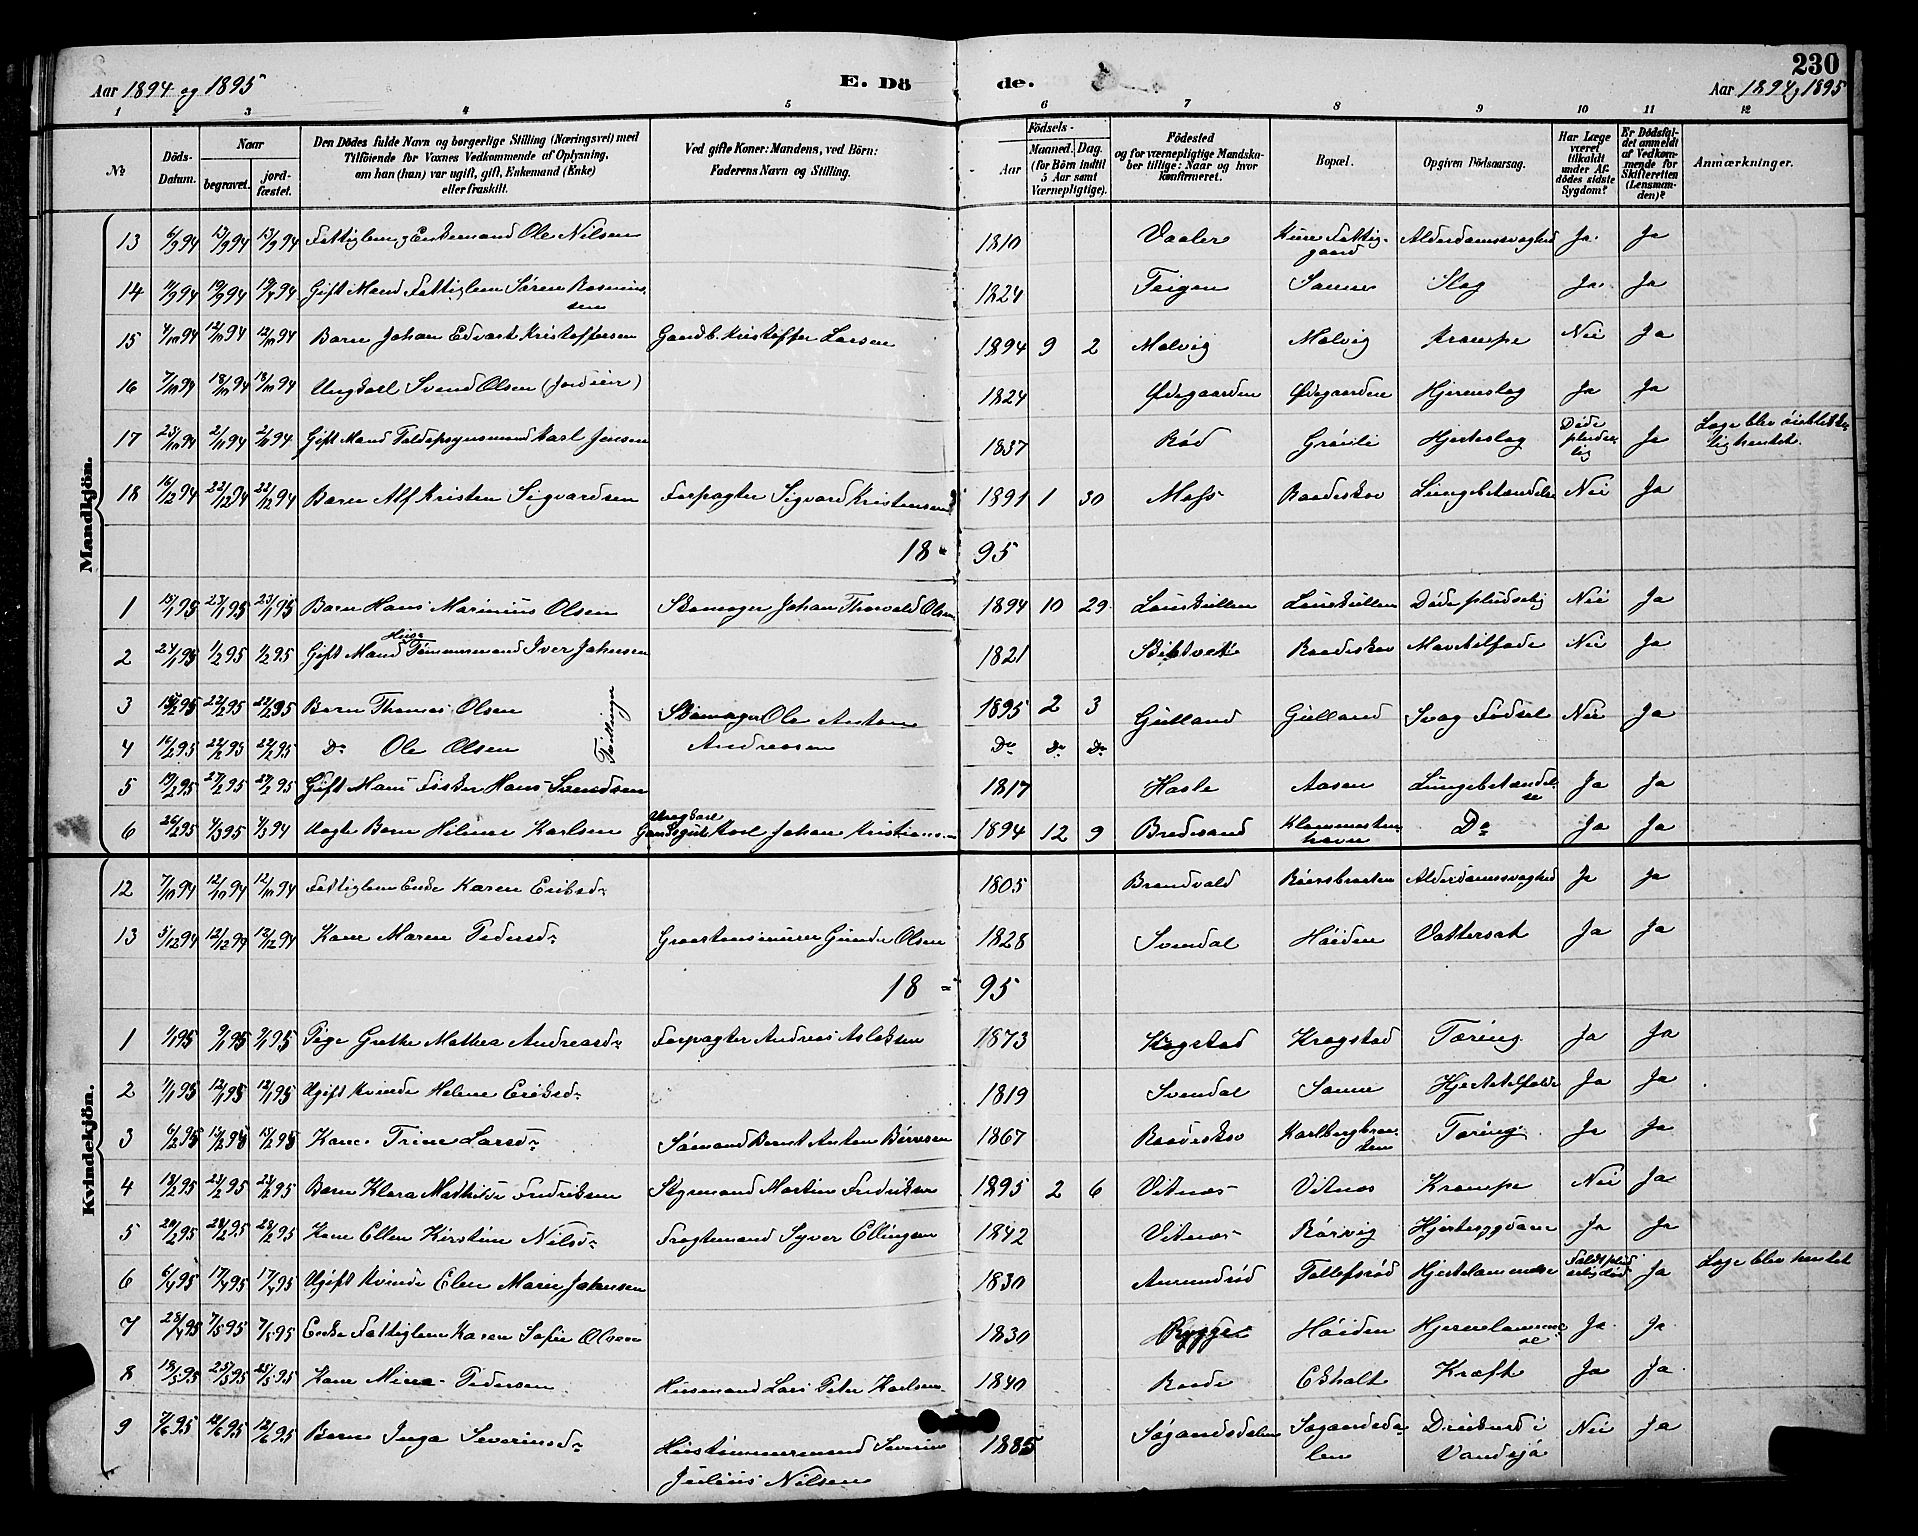 230
Aar 1894 og 1895 E. Dö de. Aar 1894 og 1895
1 2 3 4 5 6 7 8 9 10 11 12
№ Döds-Datum. Naar begravet. jordfæstet. Den Dödes fulde Navn og borgerlige Stilling (Næringsvei) med Tilföiende for Voxnes Vedkommende af Oplysning, om han (hun) var ugift, gift, Enkemand (Enke) eller fraskilt. Ved gifte Koner: Mandens, ved Börn: Faderens Navn og Stilling. Födsels- Aar Maaned. Dag. (for Börn indtil 5 Aar samt Værnepligtige). Födested og for værnepligtige Mandskaber tillige: Naar og hvor konfirmeret. Bopæl. Opgiven Dödsaarsag. Har Læge været tilkaldt under Afdödes sidste Sygdom? Er Dödsfaldet anmeldt af Vedkommende for Skifteretten (Lensmanden)? Anmærkninger.
Mandkjön.
13 6/9 94 13/9 94 13/9 94 Fattiglem, Enkemand Ole Nilsen 1810 Vaaler Kure Fattiggaard Alderdomssvaghed Ja Ja
14 94 19/9 94 94 Gift Mand Fattiglem Sören Rasmussen 1824 Teigen Sanne Slag Ja Ja
15 4/10 94 12/10 94 12/10 94 Barn Johan Edvart Kristoffersen Gaardb. Kristoffer Larsen 1894 9 2 Malvig Malvig Krampe Nei Ja
16 7/10 94 18/10 94 18/10 94 Ungkarl Svend Olsen (Jordeier) 1824 Ødegaarden Ødegaarden Hjerneslag Ja Ja
17 25/10 94 2/11 94 2/11 94 Gift Mand Toldopsynsmand Karl Jensen 1837 Röd Grönli Hjerteslag Döde pludselig Ja Læge blev öieblikkelig hentet.
18 16/12 94 22/12 94 22/12 94 Barn Alf Kristen Sigvardsen Forpagter Sigvard Kristensen 1891 1 30 Moss Raadeskov Lungebetændelse Nei Ja
18 - 95
1 15/1 95 23/1 95 23/1 95 Barn Hans Marinius Olsen Skomager Johan Thorvald Olsen 1894 10 29 Löuekullen Löuekullen Döde pludselig Nei Ja
2 24/1 95 1/2 95 1/2 95 Gift Mand Hus Tömmermand Iver Johnsen 1821 Raadeskov Mavetilfælde Nei Ja
3 15/2 95 22/2 95 22/2 95 Barn Thomas Olsen Tvillinger Skomager Ole Anton 1895 2 3 Gulland Gulland Svag Födsel Nei Ja
4 16/2 95 22/2 95 22/2 95 Do Ole Olsen Andreasen Do Do Do
5 19/2 95 27/2 95 27/2 95 Gift Mand Fisker Hans Svendsen 1817 Hasle Aasen Lungebetændelse Ja Ja
6 26/2 95 4/3 95 4/3 94 Uægte Barn Hilmar Karlsen Ungkarl Gaardsgut Karl Johan Kristiansen 1894 12 9 Bredesand Klommestenhavn Do Ja Ja
Kvindekjön.
12 7/10 94 12/10 94 12/10 94 Fattiglem Enke Karen Eriksdr 1805 Brandvold Alderdomssvaghed Ja Ja
13 5/12 94 12/12 94 12/12 94 Kone Maren Pedersdr Graastensmurer Gunder Olsen 1828 Svendal Höiden Vattersot Ja Ja
18 - 95
1 1/1 95 9/1 95 9/1 95 Pige Grethe Mathea Andreasdr Forpagter Andreas Aslaksen 1873 Kragstad Kragstad Tæring Ja Ja
2 1/1 95 12/1 95 12/1 95 Ugift Kvinde Helene Eriksdr 1819 Svendal Sanne Hjertetilfælde Ja Ja
3 6/2 95 15/2 95 15/2 95 Kone Trine Larsdr Sömand Bernt Anton Börresen 1867 Raadeskov Karlbergbraaten Tæring Ja Ja
4 18/2 95 23/2 95 23/2 95 Barn Klara Mathilde Fredriksen Styrmand Martin Fredriksen 1895 2 6 Vitnæs Vitnæs Krampe Nei Ja
5 20/2 95 28/2 95 28/2 95 Kone Ellen Kirstine Nilsdr Fragtemand Syver Ellingsen 1842 Vitnæs Rörvig Hjertesygdom Ja Ja
6 6/4 95 17/4 95 17/4 95 Ugift Kvinde Elen Marie Johansen 1830 Aurundröd Tollefsröd Hjertelammelse Faldt pludselig död Ja Læge blev hentet
7 28/4 95 7/5 95 7/5 95 Enke Fattiglem Karen Sofie Olsen 1830 Rygge Höiden Hjernelammelse Ja Ja
8 18/5 95 25/5 95 25/5 95 Kone Mina Pedersen Husmand Lars Peter Karlsen 1840 Raade Ekholt Kræft Ja Ja
9 7/6 95 12/6 95 12/6 95 Barn Inga Severinsdr Hustömmermand Severin Julius Nilsen 1885 Sögaardsdalen Sogaardsdalen Druknede i Vansjö Nei Ja